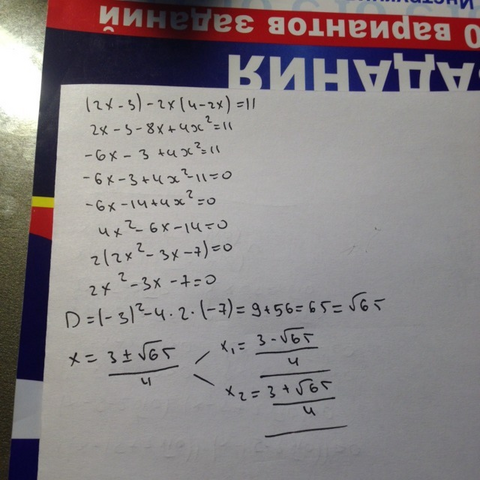 Инструкц
0 вариантов заданий
ЗАДАНИЯ
(2x-3)-2x(4-2x)=11
2x-3-8x+4x²=11
-6x-3+4x²=11
-6x-3+4x²-11=0
-6x-14+4x²=0
4x²-6x-14=0
2(2x²-3x-7)=0
2x²-3x-7=0
D=(-3)²-4·2·(-7)=9+56=65=√65
x=3±√65/4
x₁=3-√65/4
x₂=3+√65/4